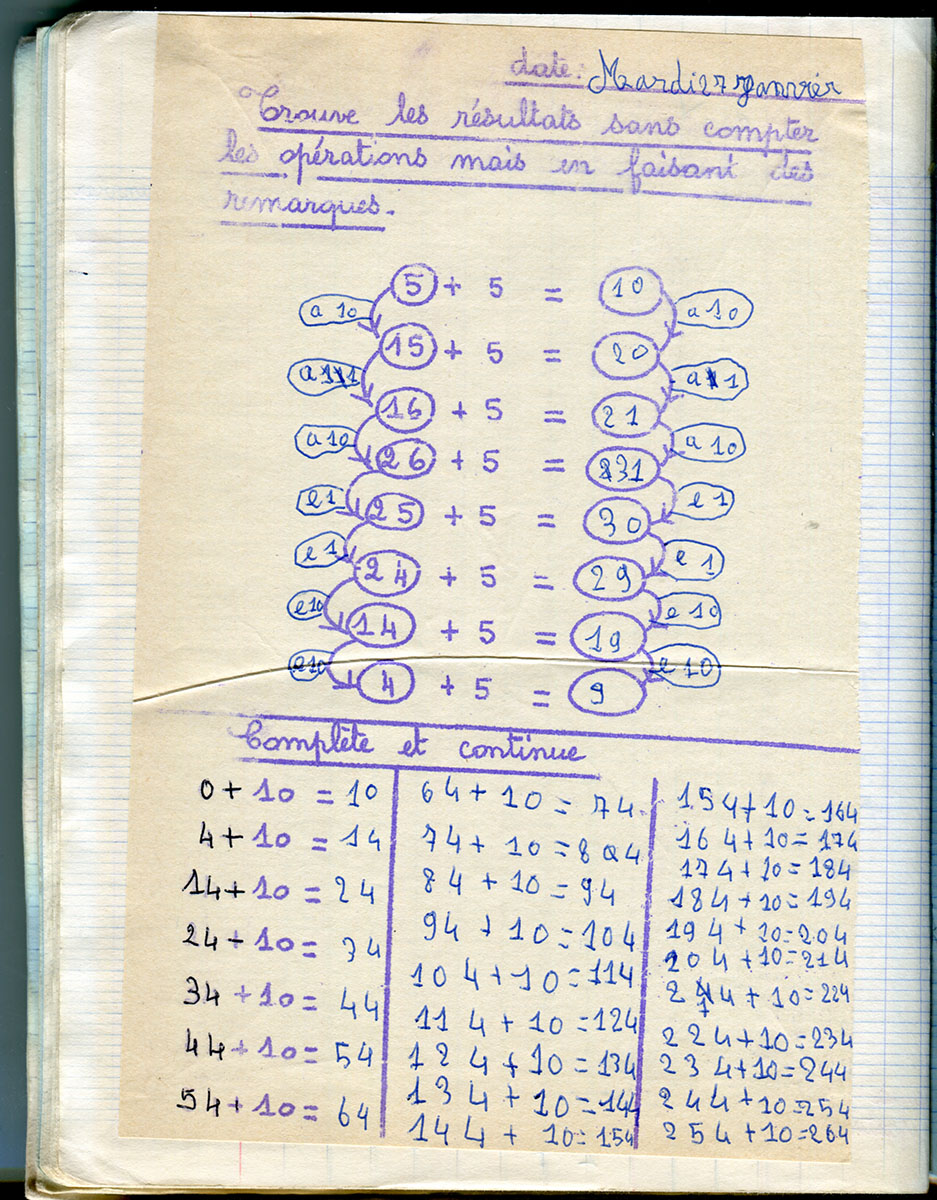 date: Mardi 27 Janvier
Trouve les résultats sans compter
les opérations mais en faisant des
remarques.
5 + 5 = 10
a 10 a 10
15 + 5 = 20
a 1 a 1
16 + 5 = 21
a 10 a 10
26 + 5 = 31
e 1 e 1
25 + 5 = 30
e 1 e 1
24 + 5 = 29
e 10 e 10
14 + 5 = 19
e 10 e 10
4 + 5 = 9
Complète et continue
0 + 10 = 10
4 + 10 = 14
14 + 10 = 24
24 + 10 = 34
34 + 10 = 44
44 + 10 = 54
54 + 10 = 64
64 + 10 = 74
74 + 10 = 84
84 + 10 = 94
94 + 10 = 104
104 + 10 = 114
114 + 10 = 124
124 + 10 = 134
134 + 10 = 144
144 + 10 = 154
154 + 10 = 164
164 + 10 = 174
174 + 10 = 184
184 + 10 = 194
194 + 10 = 204
204 + 10 = 214
214 + 10 = 224
224 + 10 = 234
234 + 10 = 244
244 + 10 = 254
254 + 10 = 264